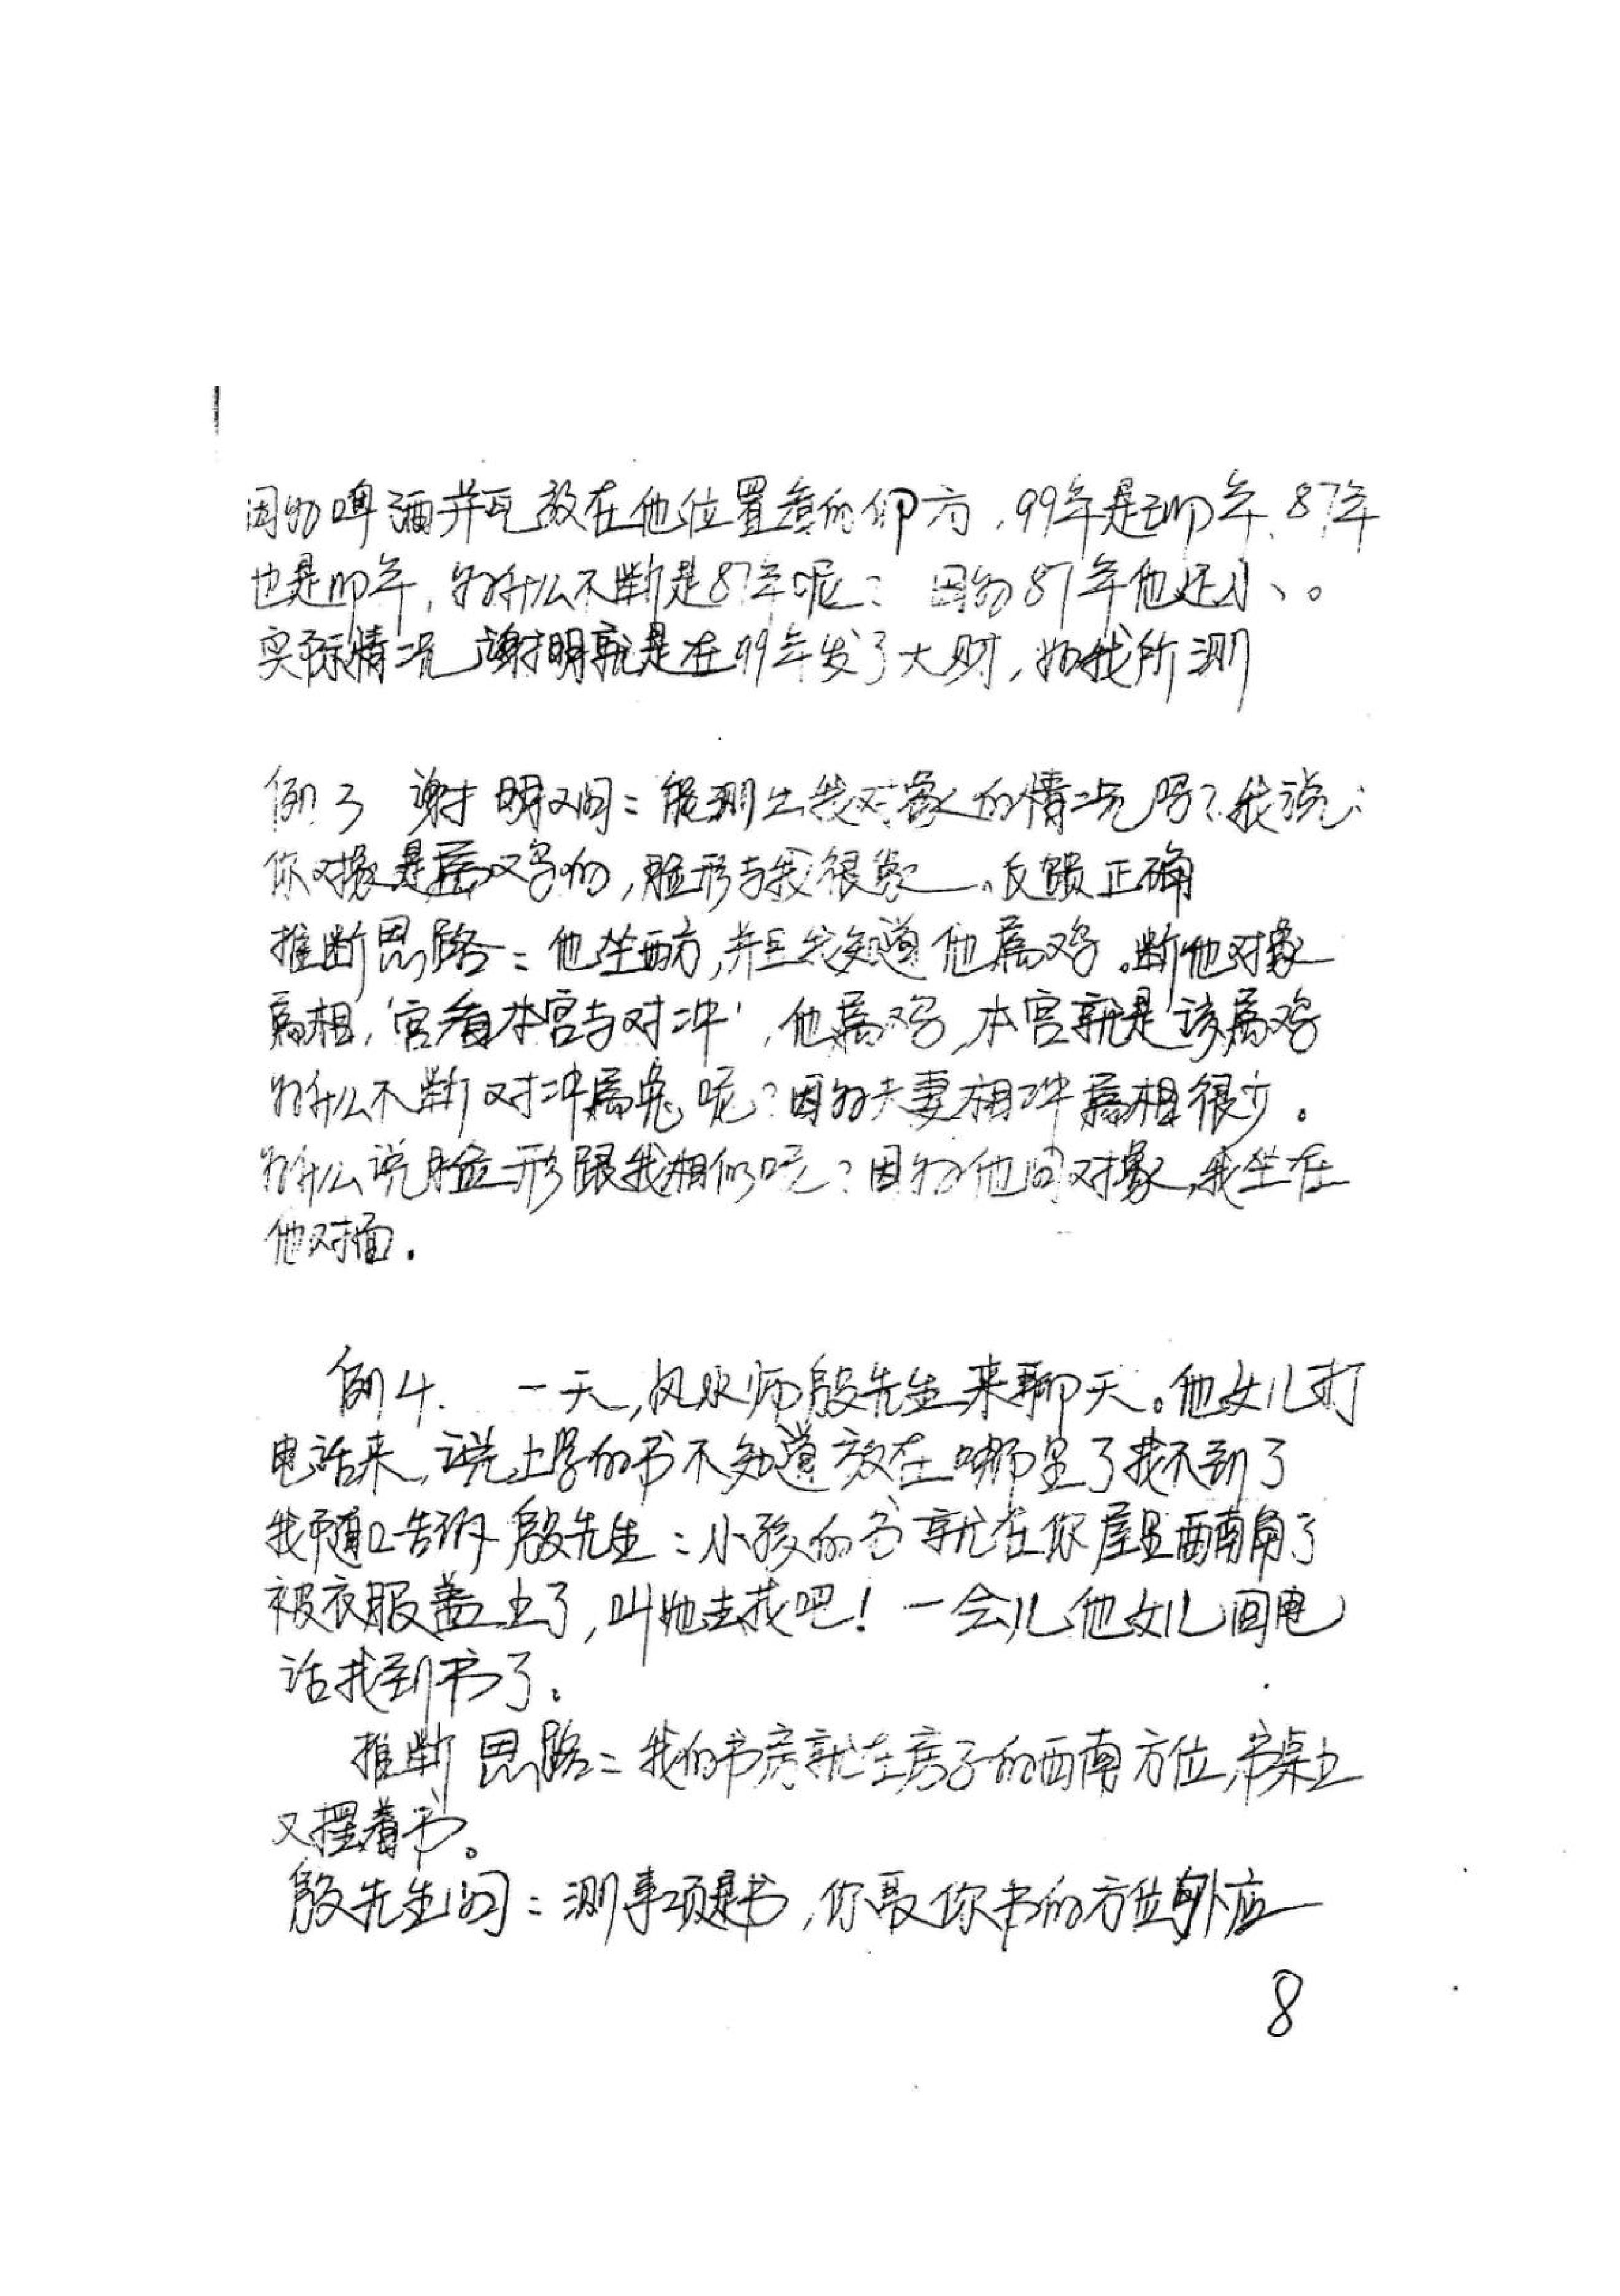 因为啤酒并瓦放在他位置是的卯方，99年是卯年、87年
也是卯年，为什么不断是87年呢？因为87年他还小、。
实际情况 谢明就是在99年发了大财，如我所测
例3 谢明又问：能测出我对象的情况吗？我说：
你对象是属鸡的，脸形与我很象。反馈正确
推断思路：他坐西方，并且我知道他属鸡。断他对象
属相，'宫看本宫与对冲'，他属鸡，本宫就是该属鸡
为什么不断对冲属兔呢？因为夫妻相冲属相很少。
为什么说脸形跟我相似呢？因为他问对象，我坐在
他对面.
例4. 一天，风水师殷先生来聊天。他女儿打
电话来，说上学的书不知道放在哪里了找不到了
我随口告诉殷先生：小孩的书就在你屋里西南角了
被衣服盖上了，叫她去找吧！一会儿他女儿回电
话找到书了。
推断思路：我的书房就在房子的西南方位，书桌上
又摆着书。
殷先生问：测事项是书，你取你书的方位外应
8